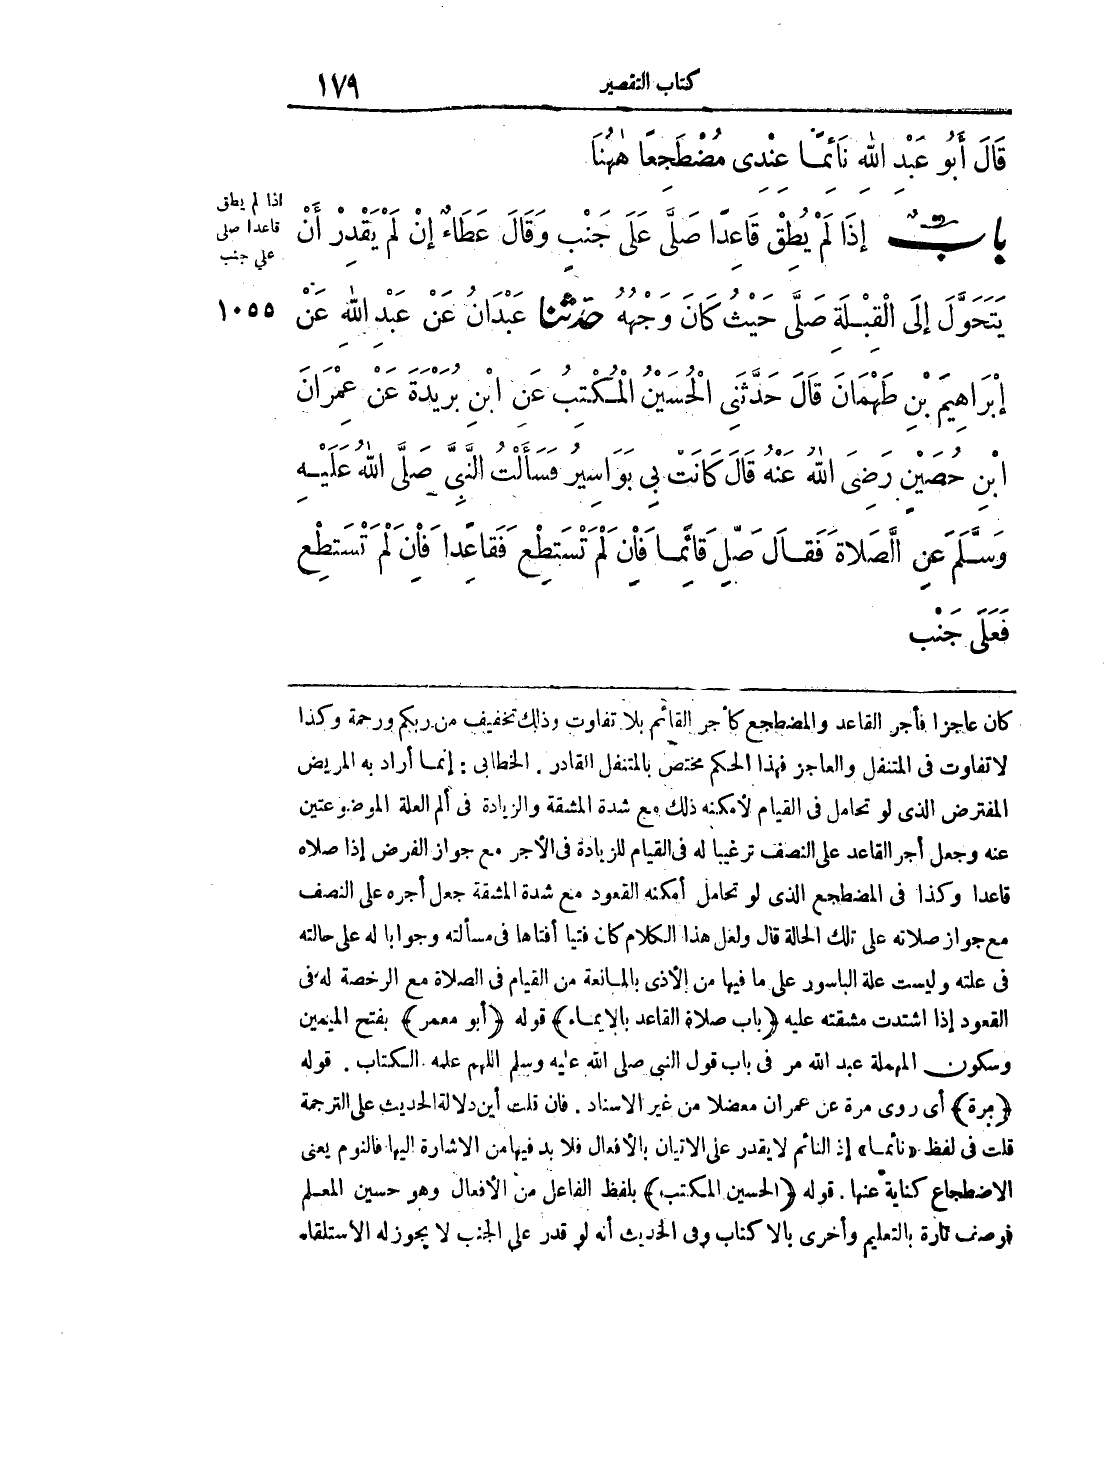 كتاب التقصير ١٧٩
قَالَ أَبُو عَبْدِ اللهِ نَائِمًا عِنْدِى مُضْطَجِعًا هٰهُنَا
بابٌ إِذَا لَمْ يُطِقْ قَاعِدًا صَلَّى عَلَى جَنْبٍ وَقَالَ عَطَاءٌ إِنْ لَمْ يَقْدِرْ أَنْ
اذا لم يطق
قاعدا صلى
على جنب
يَتَحَوَّلَ إِلَى الْقِبْلَةِ صَلَّى حَيْثُ كَانَ وَجْهُهُ حَدَّثَنَا عَبْدَانُ عَنْ عَبْدِ اللهِ عَنْ
١٠٥٥
إِبْرَاهِيمَ بْنِ طَهْمَانَ قَالَ حَدَّثَنِى الْحُسَيْنُ الْمُكْتِبُ عَنِ ابْنِ بُرَيْدَةَ عَنْ عِمْرَانَ
ابْنِ حُصَيْنٍ رَضِىَ اللهُ عَنْهُ قَالَ كَانَتْ بِي بَوَاسِيرُ فَسَأَلْتُ النَّبِىَّ صَلَّى اللهُ عَلَيْهِ
وَسَلَّمَ عَنِ الصَّلَاةِ فَقَالَ صَلِّ قَائِمًا فَإِنْ لَمْ تَسْتَطِعْ فَقَاعِدًا فَإِنْ لَمْ تَسْتَطِعْ
فَعَلَى جَنْبٍ
كان عاجزا فأجر القاعد والمضطجع كأجر القائم بلا تفاوت وذلك تخفيف من ربكم ورحمة وكذا
لا تفاوت فى المتنفل والعاجز فهذا الحكم مختص بالمتنفل القادر . الخطابى : إنما أراد به المريض
المفترض الذى لو تحامل فى القيام لأمكنه ذلك مع شدة المشقة والزيادة فى ألم العلة الموضوعتين
عنه وجعل أجر القاعد على النصف ترغيبا له فى القيام للزيادة فى الأجر مع جواز الفرض إذا صلاه
قاعدا وكذا فى المضطجع الذى لو تحامل أمكنه القعود مع شدة المشقة جعل أجره على النصف
مع جواز صلاته على تلك الحالة قال ولعل هذا الكلام كان فتيا أفتاها فى مسألته وجوابا له على حالته
فى علته وليست علة الباسور على ما فيها من الأذى بالمانعة من القيام فى الصلاة مع الرخصة له فى
القعود إذا اشتدت مشقته عليه ﴿باب صلاة القاعد بالإيماء﴾ قوله ﴿أبو معمر﴾ بفتح الميمين
وسكون المهملة عبد الله مر فى باب قول النبي صلى الله عليه وسلم اللهم علمه الكتاب . قوله
﴿مرة﴾ أى روى مرة عن عمران معضلا من غير الاسناد . فان قلت أين دلالة الحديث على الترجمة
قلت فى لفظ «نائما» إذ النائم لا يقدر على الاتيان بالأفعال فلا بد فيها من الاشارة اليها فالنوم يعنى
الاضطجاع كناية عنها . قوله ﴿الحسين المكتب﴾ بلفظ الفاعل من الأفعال وهو حسين المعلم
فوصف تارة بالتعليم وأخرى بالاكتاب وفى الحديث أنه لو قدر على الجنب لا يجوز له الاستلقاء